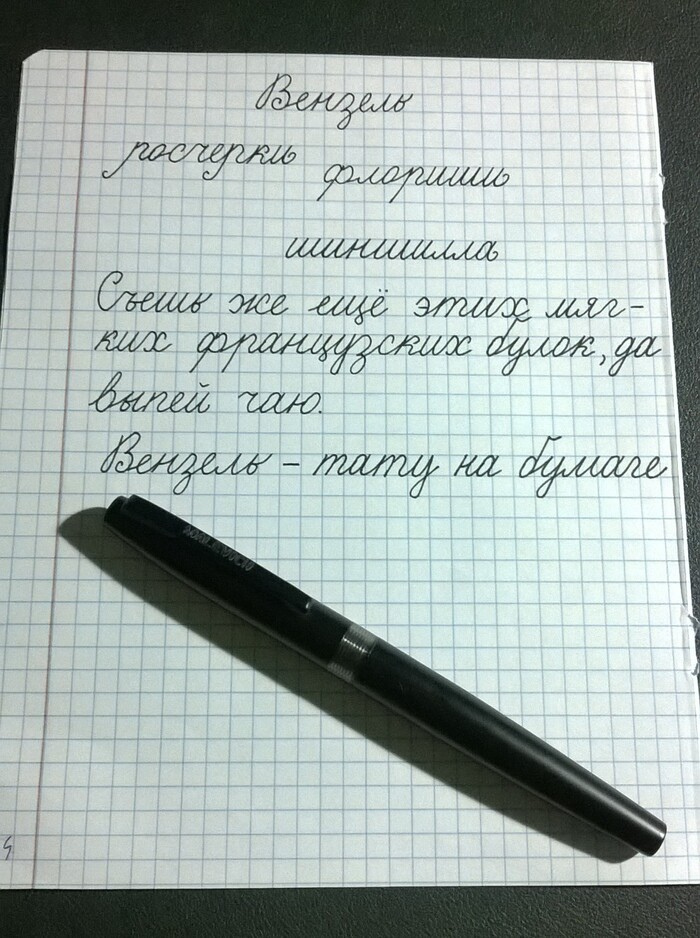 Вензель
росчерки флориши
шиншилла
Съешь же ещё этих мяг-
ких французских булок, да
выпей чаю.
Вензель – тату на бумаге